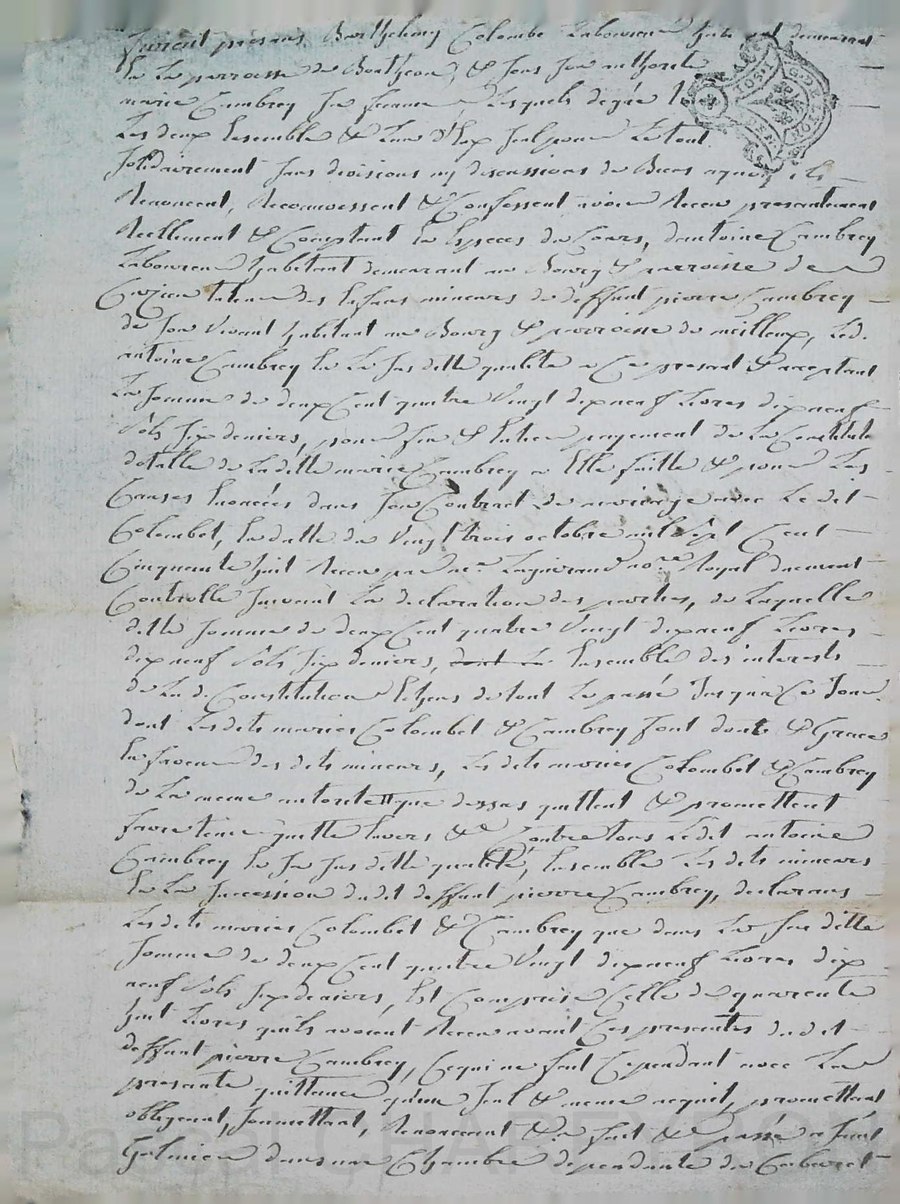 furent presans Barthelemy Colombe Laboureur habitant demeurant
En La parroisse de Boatheon, & sous son authorité
marie Cambrey sa femme Lesquels de gré
Les deux Ensemble & L'un d'Eux seul pour Le tout
solidairement sans divisions ny discussions de Biens aquoy ils
Renoncent, Reconnoissent & Confessent avoir Receu presentement
Reellement & Comptant En Especes du Cours, d'antoine Cambrey
Laboureur habitant demeurant au Bourg & parroisse de
tuteur des Enfans mineurs de deffunt pierre Cambrey
de son vivant habitant au Bourg & parroisse de meilleux, Led.
antoine Cambrey En La susditte qualité a Ce present & acceptant
La somme de deux Cent quatre Vingt dixneuf Livres dixneuf
sols six deniers, pour fin & Entier payement de La Constitution
dotalle de Laditte marie Cambrey a Elle faitte & pour Les
Causes Enoncées dans son Contract de mariage avec Le dit
Colombet, En datte du Vingt trois octobre mil sept Cent
Cinquante huit Receu par me. no.re Royal duement
Controllé suivant La declaration des parties, de Laquelle
ditte somme de deux Cent quatre Vingt dixneuf Livres
dixneuf sols six deniers, Ensemble des interests
de La d. Constitution Echeus de tout Le passé Jusqua Ce Jour
dont Lesdits mariés Colombet & Cambrey font don & Grace
En faveur des dits mineurs, Les dits mariés Colombet & Cambrey
de La meme autorité que dessus quittent & promettent
faire tenir quitte Envers & Contre tous Ledit antoine
Cambrey En sa susditte qualité, Ensemble Les dits mineurs
En La succession dudit deffunt pierre Cambrey, declarans
Les dits mariés Colombet & Cambrey que dans La susditte
somme de deux Cent quatre Vingt dixneuf Livres dix
neuf sols six deniers, Est Comprise Celle de quarente
huit Livres qu'ils avoient Receu avant Ces presentes dudit
deffunt pierre Cambrey, Ce qui ne fait Cependant avec La
presante quittance qu'un seul & meme acquit, promettant
obligeant, soumettant, Renonceant & fait & passé a saint
Galmier dans une Chambre dependante du Cabaret